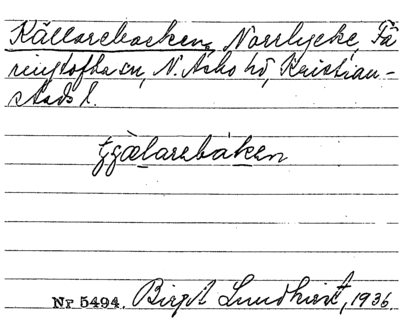 Källarebacken, Norrlycke, Fä
ringtofta sn, N. Åsbo hd, Kristian-
stads l.
tjæ̀larebáken
Nr 5494. Birgit Lundkvist, 1936.